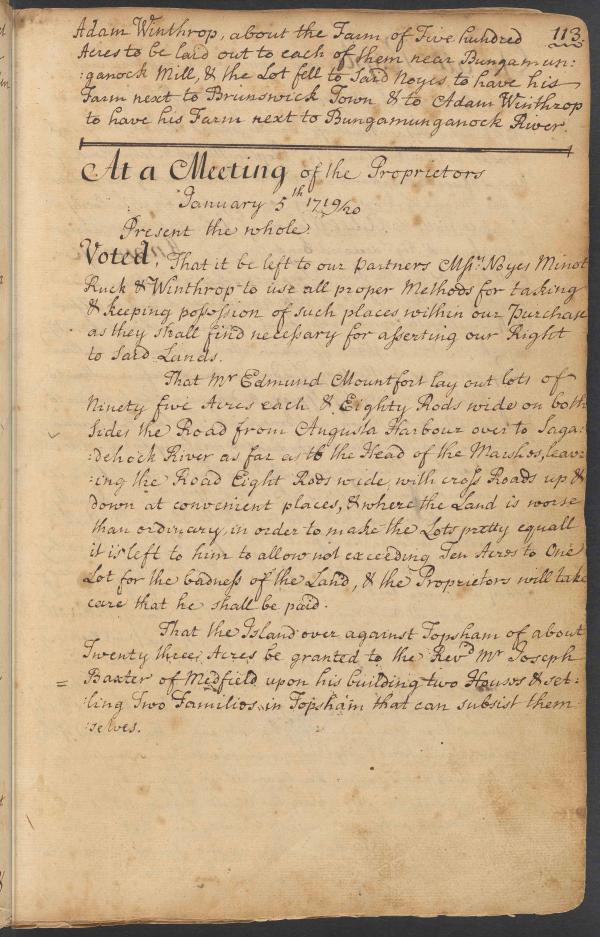 113.
Adam Winthrop, about the Farm of Five hundred
Acres to be laid out to each of them near Bungamun:
:ganock Mill, & the Lot fell to Said Noyes to have his
Farm next to Brunswick Town & to Adam Winthrop
to have his Farm next to Bungamunganock River.
At a Meeting of the Proprietors
January 5th 1719/20
Present the whole
Voted, That it be left to our Partners Messrs Noyes Minot
Ruck & Winthrop to use all proper Methods for taking
& keeping possession of such places within our Purchase
as they shall find necessary for asserting our Right
to Said Lands.
That Mr Edmund Mountfort lay out lots of
Ninety five Acres each & Eighty Rods wide on both
Sides the Road from Augusta Harbour over to Saga:
:dehock River as far as to the Head of the Marshes, leav:
:ing the Road Eight Rods wide, with cross Roads up &
down at convenient places, & where the Land is worse
than ordinary, in order to make the Lots pretty equall
it is left to him to allow not exceeding Ten Acres to One
Lot for the badness of the Land, & the Proprietors will take
care that he shall be paid.
That the Island over against Topsham of about
Twenty three Acres be granted to the Revd Mr Joseph
= Baxter of Medfield upon his building two Houses & set:
:ling Two Families in Topsham that can subsist them
:selves.